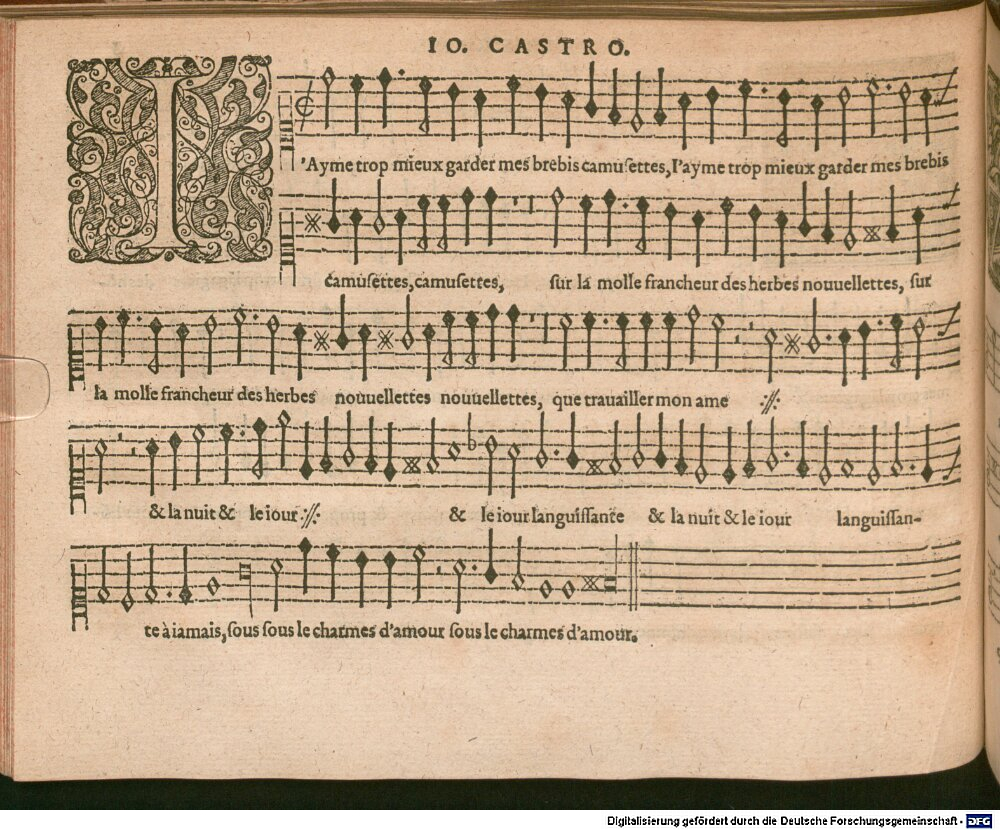 IO. CASTRO.
I'Ayme trop mieux garder mes brebis camusettes, I'ayme trop mieux garder mes brebis
camusettes, camusettes, sur la molle francheur des herbes nouuellettes, sur
la molle francheur des herbes nouuellettes nouuellettes, que trauailler mon ame :/:
& la nuit & le iour :/: & le iour languissante & la nuit & le iour languissan-
te à iamais, sous sous le charmes d'amour sous le charmes d'amour.
Digitalisierung gefördert durch die Deutsche Forschungsgemeinschaft - DFG